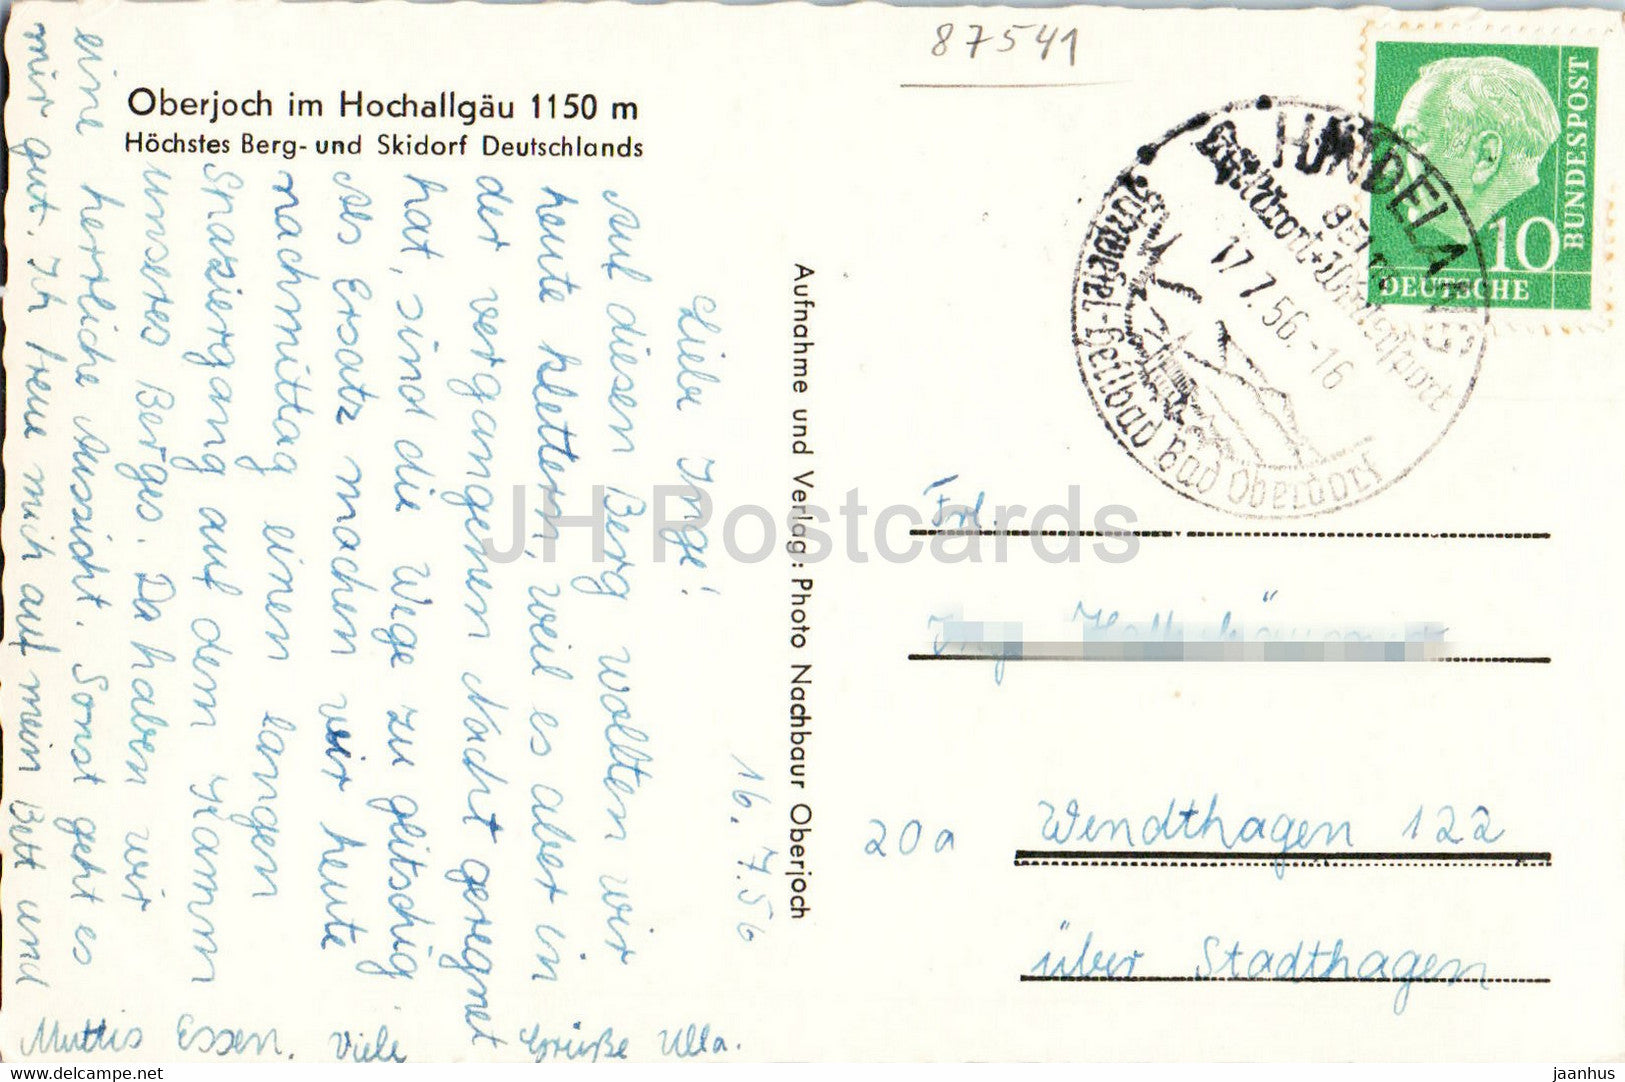 87541
Oberjoch im Hochallgäu 1150 m
Höchstes Berg- und Skidorf Deutschlands
16. 7. 56
Liebe Inge!
Auf diesen Berg wollten wir
heute klettern, weil es aber in
der vergangenen Nacht geregnet
hat, sind die Wege zu glitschig.
Als Ersatz machen wir heute
nachmittag einen langen
Spaziergang auf dem Kamm
unseres Berges. Da haben wir
eine herrliche Aussicht. Sonst geht es
mir gut. Ich freue mich auf mein Bett und
Muttis Essen. Viele Grüße Ulla.
Aufnahme und Verlag: Photo Nachbaur Oberjoch
HINDELANG
17.7.56.-16
Bad Oberdorf
10
DEUTSCHE
BUNDESPOST
Frl.
20a Wendthagen 122
über Stadthagen
JH Postcards
www.delcampe.net
jaanhus